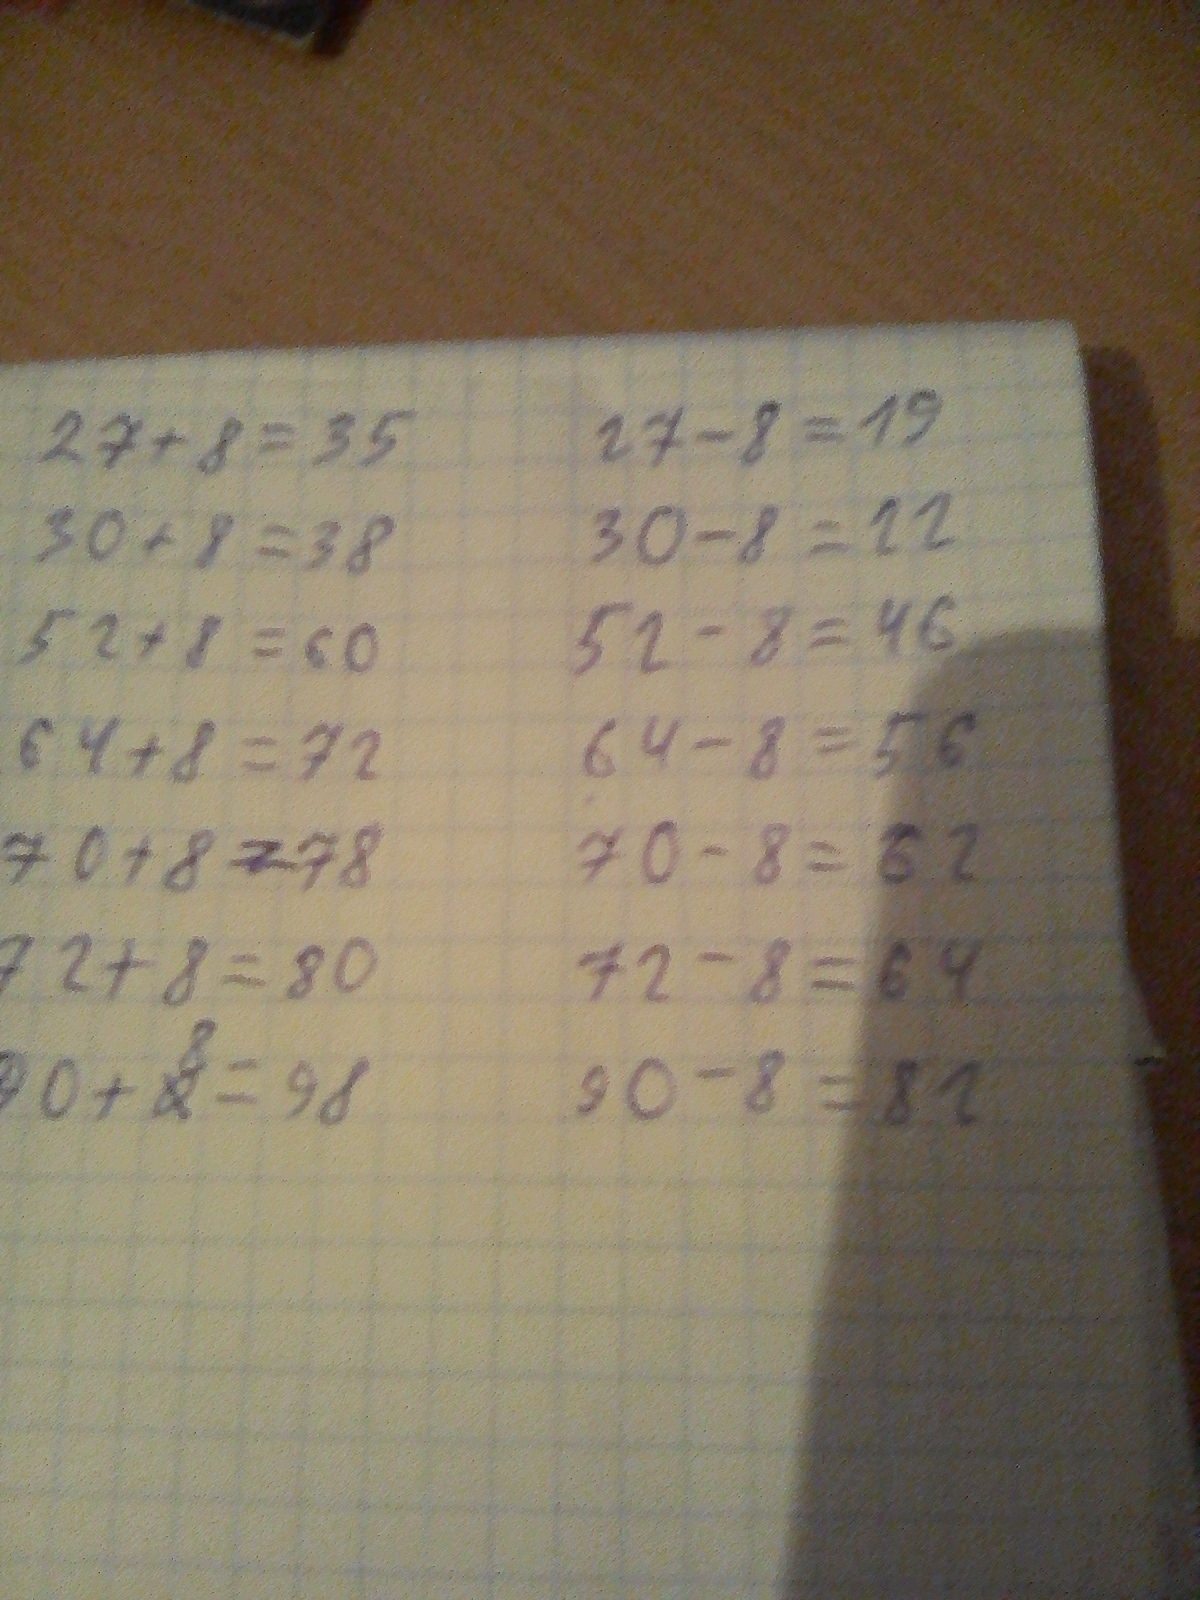 27+8=35 27-8=19
30+8=38 30-8=22
52+8=60 52-8=46
64+8=72 64-8=56
70+8=78 70-8=62
72+8=80 72-8=64
90+8=98 90-8=82